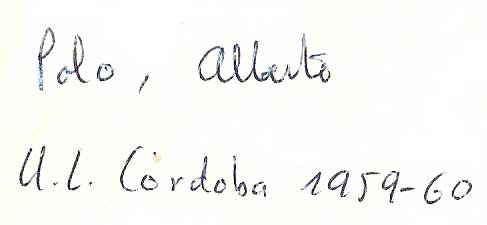 Polo, Alberto
U.L. Córdoba 1959-60